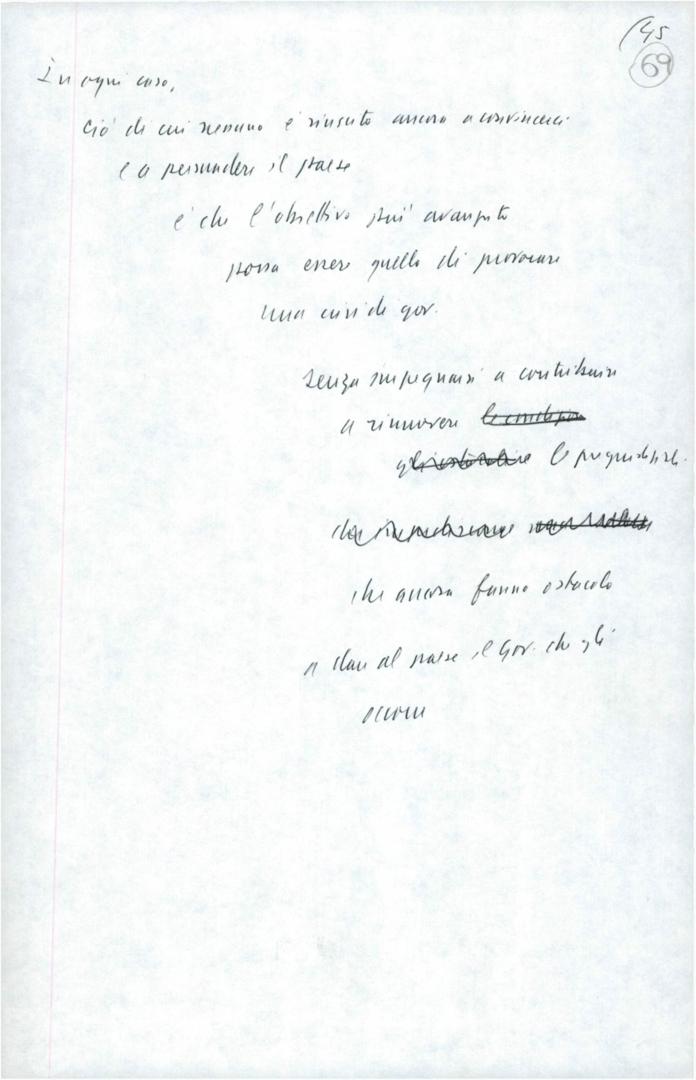 145
69
In ogni caso,
ciò di cui nessuno è riuscito ancora a convincerci
e a persuadere il paese
è che l'obiettivo più avanzato
possa essere quello di provocare
una crisi di gov.
senza impegnarsi a contribuire
a rimuovere
le pregiudiziali
che ancora fanno ostacolo
a dare al paese il Gov. che gli
occorre